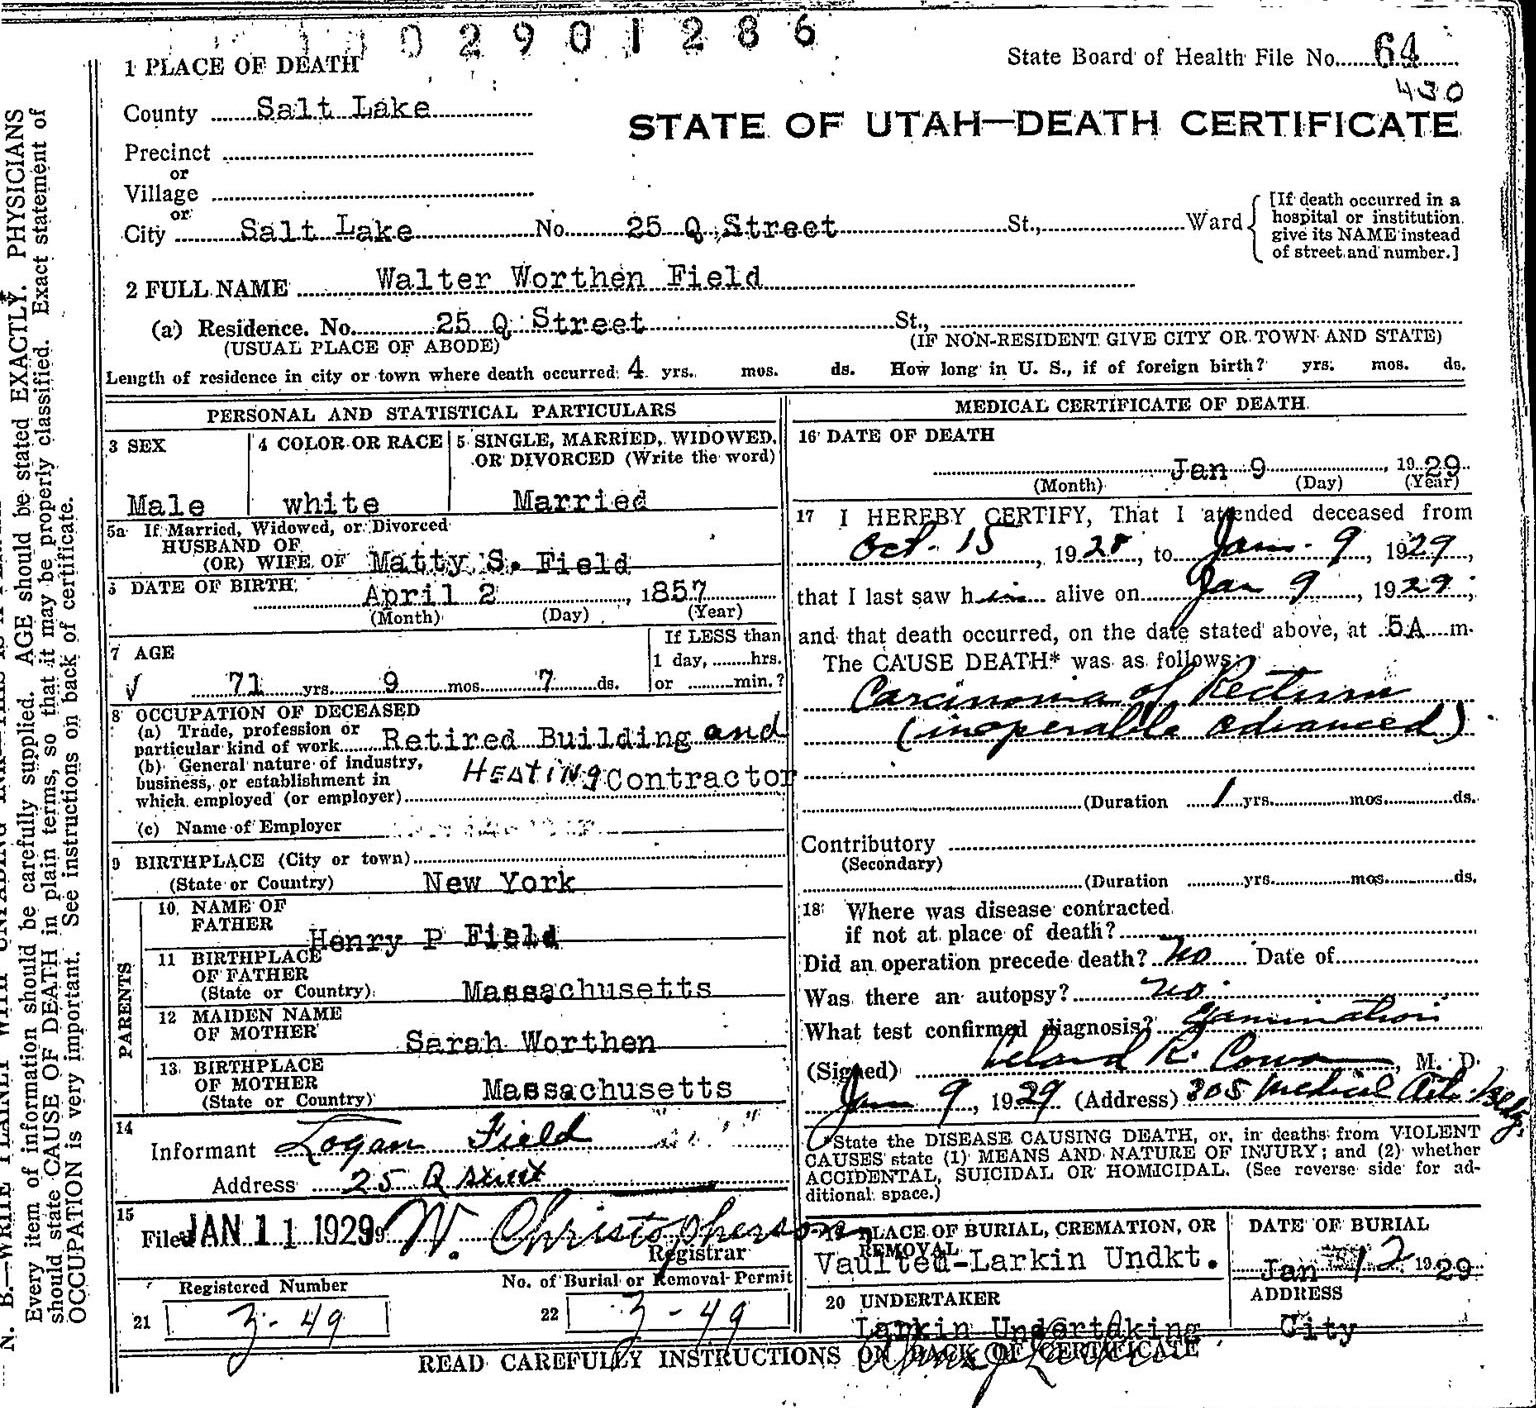 02901286
State Board of Health File No. 64
430
1 PLACE OF DEATH
County Salt Lake
STATE OF UTAH—DEATH CERTIFICATE
Precinct
or
Village
or
City Salt Lake No. 25 Q Street St., Ward
[If death occurred in a
hospital or institution
give its NAME instead
of street and number.]
2 FULL NAME Walter Worthen Field
(a) Residence. No. 25 Q Street St.,
(USUAL PLACE OF ABODE) (IF NON-RESIDENT GIVE CITY OR TOWN AND STATE)
Length of residence in city or town where death occurred 4 yrs. mos. ds. How long in U. S., if of foreign birth? yrs. mos. ds.
PERSONAL AND STATISTICAL PARTICULARS
3 SEX
Male
4 COLOR OR RACE
white
5 SINGLE, MARRIED, WIDOWED,
OR DIVORCED (Write the word)
Married
5a If Married, Widowed, or Divorced
HUSBAND OF
(OR) WIFE OF Matty S. Field
6 DATE OF BIRTH
April 2, 1857
(Month) (Day) (Year)
7 AGE
71 yrs. 9 mos. 7 ds.
If LESS than
1 day, hrs.
or min.?
8 OCCUPATION OF DECEASED
(a) Trade, profession or
particular kind of work Retired Building and
(b) General nature of industry,
business, or establishment in HEATING Contractor
which employed (or employer)
(c) Name of Employer
9 BIRTHPLACE (City or town)
(State or Country) New York
PARENTS
10. NAME OF
FATHER
Henry P Field
11 BIRTHPLACE
OF FATHER
(State or Country) Massachusetts
12 MAIDEN NAME
OF MOTHER
Sarah Worthen
13 BIRTHPLACE
OF MOTHER
(State or Country) Massachusetts
14
Informant Logan Field
Address 25 Q street
15
Filed JAN 11 1929 W. Christopherson
Registrar
Registered Number
21 3-49
No. of Burial or Removal Permit
22 3-49
MEDICAL CERTIFICATE OF DEATH
16 DATE OF DEATH
Jan 9, 1929
(Month) (Day) (Year)
17 I HEREBY CERTIFY, That I attended deceased from
Oct. 15, 1928, to Jan. 9, 1929,
that I last saw him alive on Jan 9, 1929;
and that death occurred, on the date stated above, at 5A m.
The CAUSE DEATH* was as follows:
Carcinoma of Rectum
(inoperable advanced)
(Duration 1 yrs. mos. ds.
Contributory
(Secondary)
(Duration yrs. mos. ds.
18 Where was disease contracted
if not at place of death?
Did an operation precede death? No Date of
Was there an autopsy? no
What test confirmed diagnosis? Examination
(Signed) Leland R. Cowan, M. D.
Jan 9, 1929 (Address) 305 Medical Arts Bldg.
*State the DISEASE CAUSING DEATH, or, in deaths from VIOLENT
CAUSES state (1) MEANS AND NATURE OF INJURY; and (2) whether
ACCIDENTAL, SUICIDAL OR HOMICIDAL. (See reverse side for ad-
ditional space.)
19 PLACE OF BURIAL, CREMATION, OR
REMOVAL
Vaulted-Larkin Undkt.
DATE OF BURIAL
Jan 12 1929
20 UNDERTAKER
Larkin Undertaking
ADDRESS
City
READ CAREFULLY INSTRUCTIONS ON BACK OF CERTIFICATE
Every item of information should be carefully supplied. AGE should be stated EXACTLY. PHYSICIANS
should state CAUSE OF DEATH in plain terms, so that it may be properly classified. Exact statement of
OCCUPATION is very important. See instructions on back of certificate.